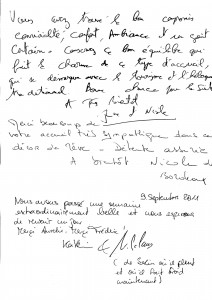 Vous avez trouvé le bon compromis
convivialité, confort, Ambiance et un goût
certain. Conservez ce bon équilibre qui
fait le charme de ce type d'accueil,
qui se démarque avec le
national. Bonne chance pour la suite
A très bientôt
et Nicole
Merci beaucoup de
votre accueil très sympathique dans un
décor de rêve - Détente assurée
A bientôt Nicole de
Bordeaux
9 Septembre 2011
Nous avons passé une semaine
extraordinairement belle et nous espérons
de revenir un jour
Merci Aurélie, Merci Frédéric!
(de Berlin où il pleut
et où il fait froid
maintenant)